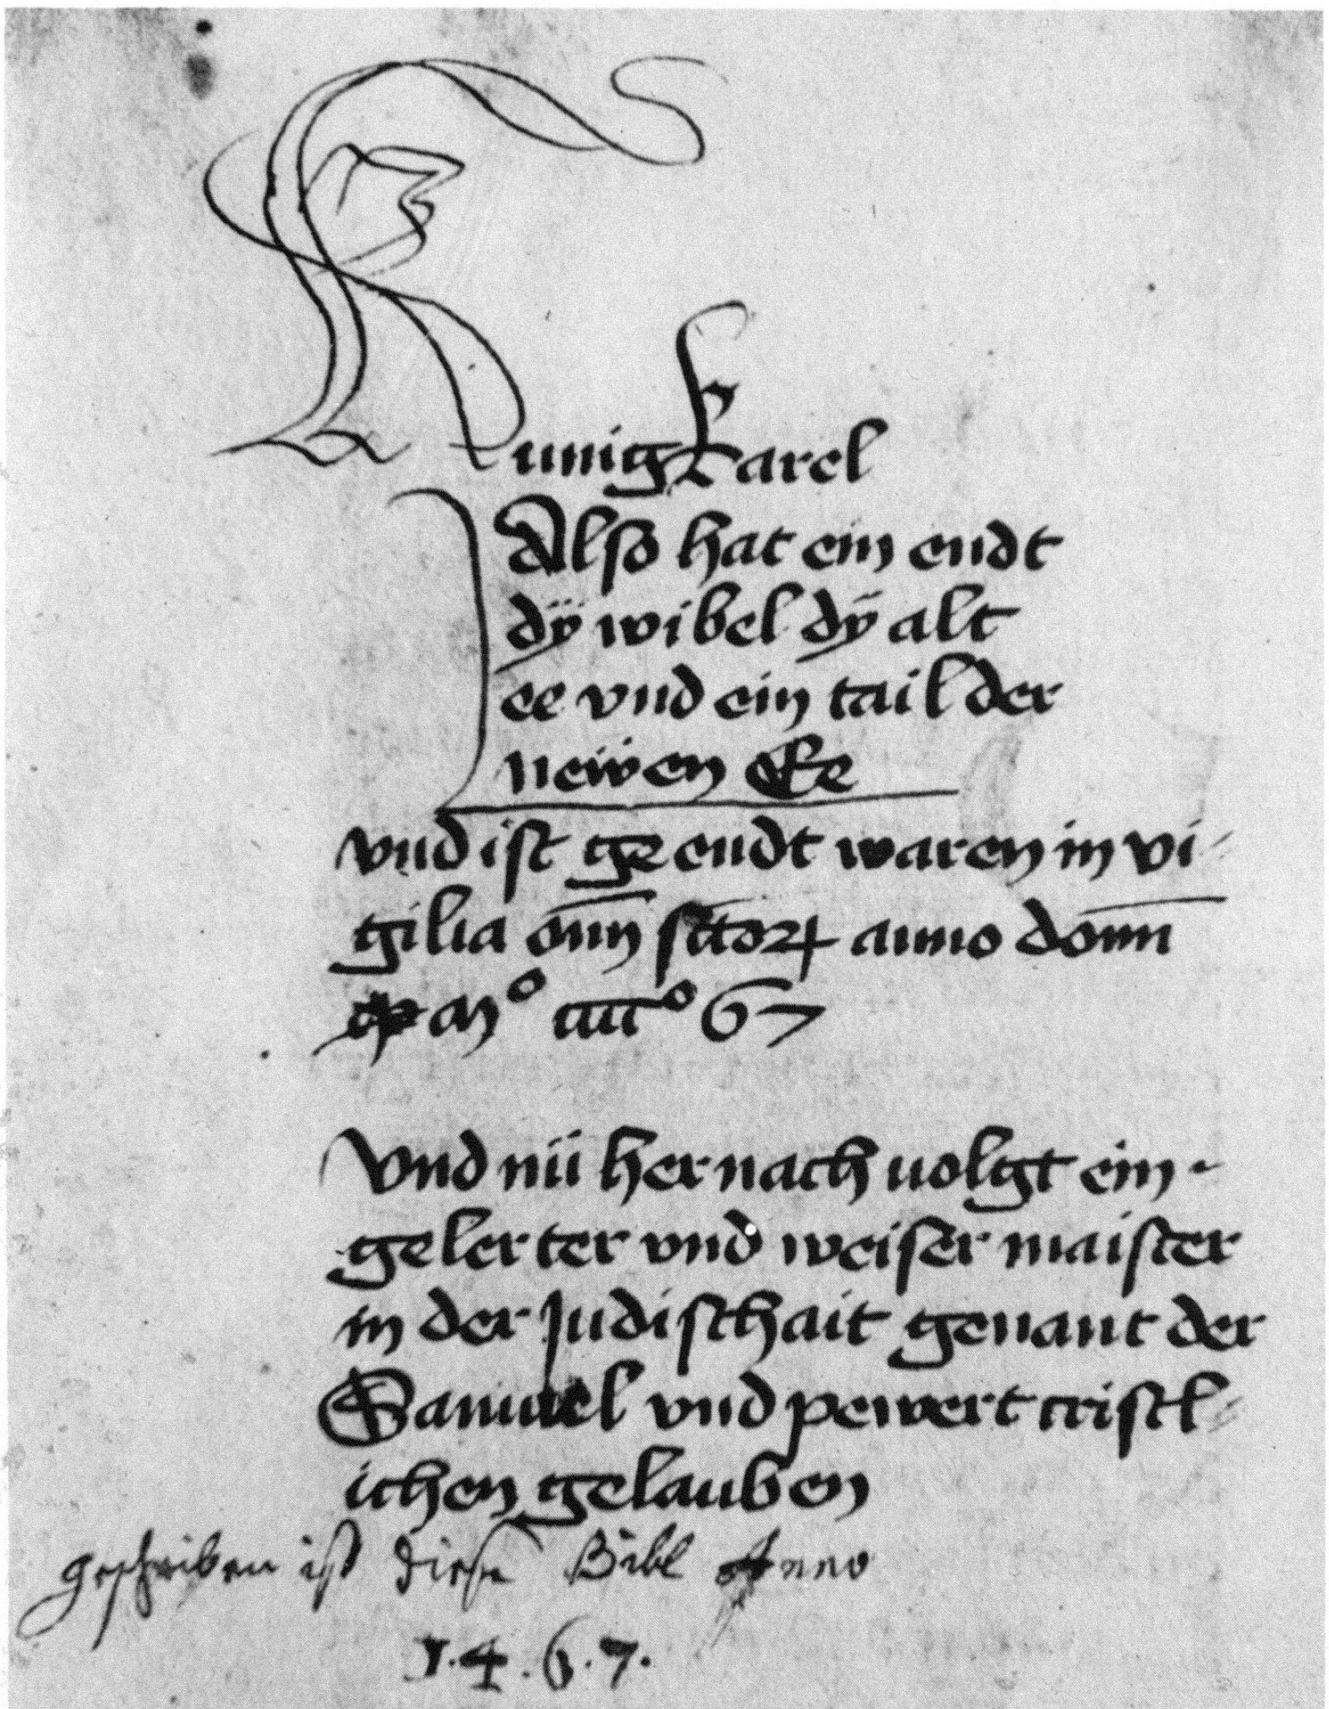 Kunig Karel
Also hat ein endt
dÿ wibel dÿ alt
ee vnd ein tail der
neẅen Ee
vnd ist ge endt waren in vi
gilia om̅ sctoꝝ anno dom̅
m° cccc° 67
Vnd nü her nach uolgt ein
gelerter vnd weiser maister
in der Judischait genant der
Samuel vnd pewert cristl
ichen gelauben
geschriben ist diese Bibl Anno
1.4.6.7.